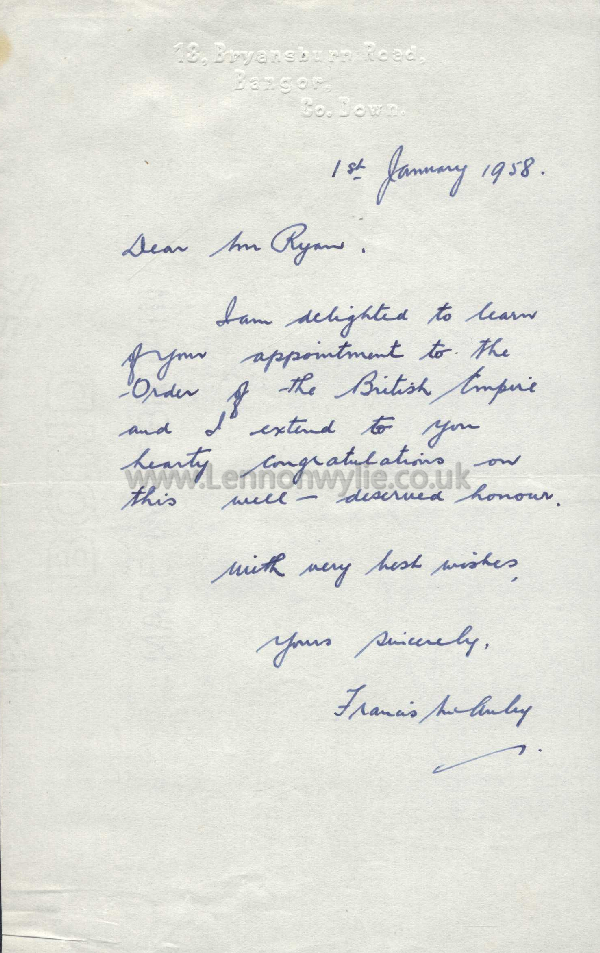 18, Bryansburn Road,
Bangor,
Co. Down.
1st January 1958.
Dear Mr Ryan.
I am delighted to learn
of your appointment to the
Order of the British Empire
and I extend to you
hearty congratulations on
www.Lennonwylie.co.uk
this well - deserved honour.
With very best wishes,
Yours sincerely,
Francis McAuley